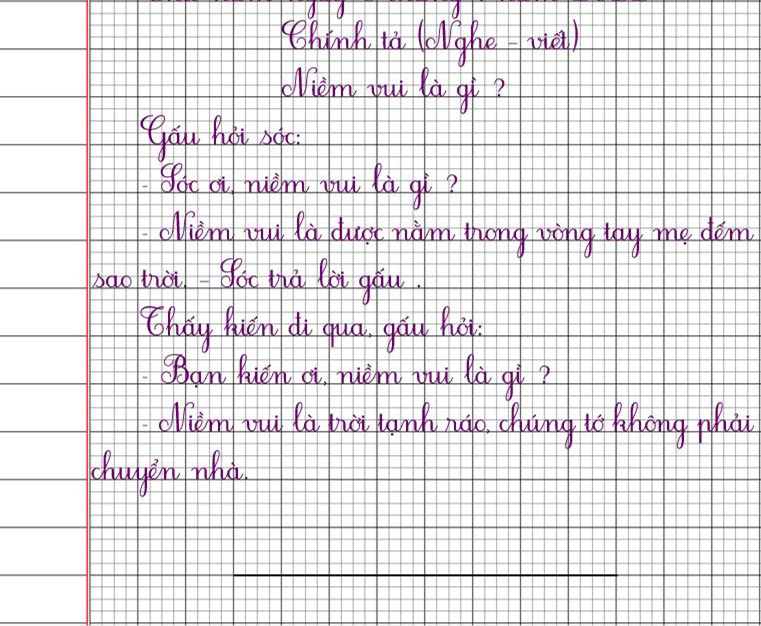 Chính tả (Nghe - viết)
Niềm vui là gì ?
Gấu hỏi sóc:
- Sóc ơi, niềm vui là gì ?
- Niềm vui là được nằm trong vòng tay mẹ đếm
sao trời. - Sóc trả lời gấu .
Thấy kiến đi qua, gấu hỏi:
- Bạn kiến ơi, niềm vui là gì ?
- Niềm vui là trời tạnh ráo, chúng tớ không phải
chuyển nhà.